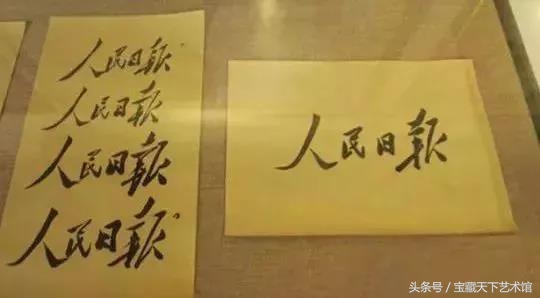 人民日报
人民日报
人民日报
人民日报
人民日报
头条号／宝藏天下艺术馆